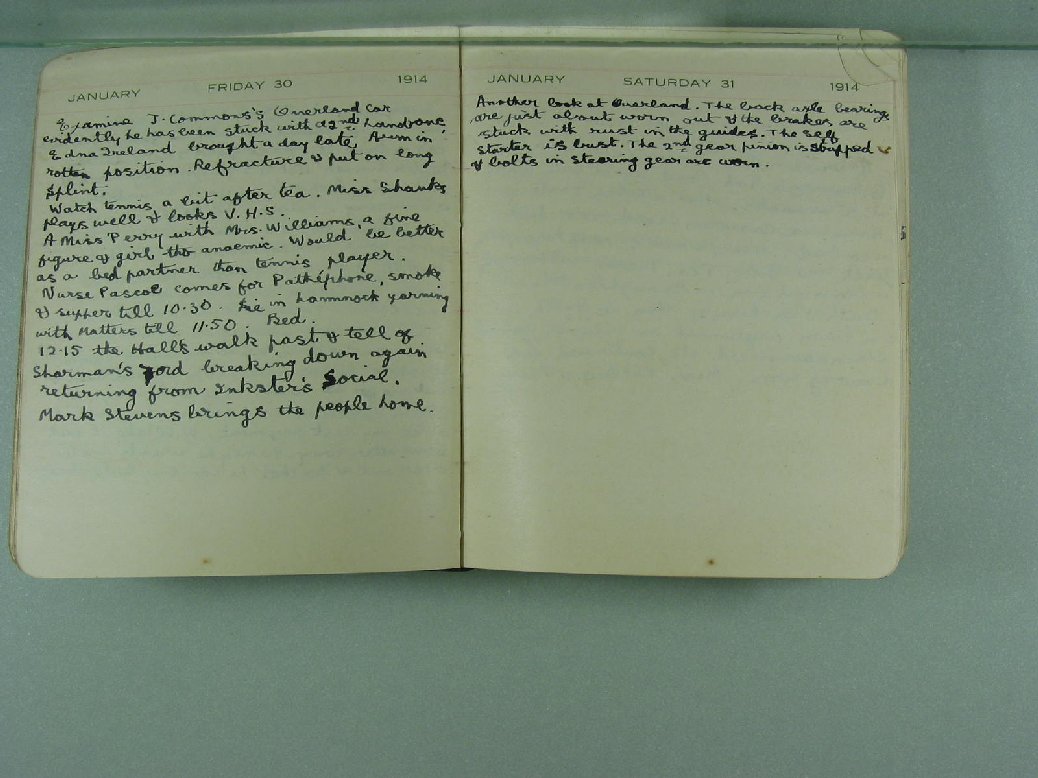 JANUARY FRIDAY 30 1914
Examine J. Commons's Overland car
evidently he has been stuck with a 2nd hand one
Edna Ireland brought a day late, Arm in
rotten position. Refracture & put on long
splint.
Watch tennis a bit after tea. Miss Shanks
plays well & looks V.H.S.
A Miss Perry with Mrs. Williams, a fine
figure of girl, tho anaemic. Would be better
as a bed partner than tennis player.
Nurse Pascoe comes for Pathéphone, smoke
& supper till 10.30. Lie in hammock yarning
with Matters till 11.50. Bed.
12.15 the Halls walk past & tell of
Sharman's Ford breaking down again
returning from Inkster's Social.
Mark Stevens brings the people home.
JANUARY SATURDAY 31 1914
Another look at Overland. The back axle bearings
are just about worn out & the brakes are
stuck with rust in the guides. The self
starter is bust. The 2nd gear pinion is stripped
& bolts in steering gear are worn.